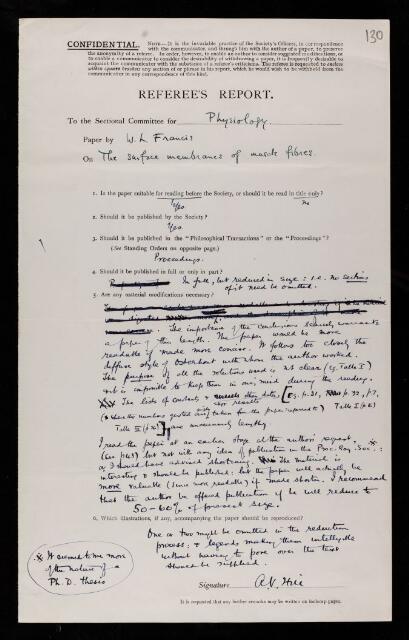 130
CONFIDENTIAL. NOTE.—It is the invariable practice of the Society's Officers, in correspondence
with the communicator and through him with the author of a paper, to preserve
the anonymity of a referee. In order, however, to enable an author to consider suggested modifications, or
to enable a communicator to consider the desirability of withdrawing a paper, it is frequently desirable to
acquaint the communicator with the substance of a referee's criticisms. The referee is requested to enclose
within square brackets any section of or phrase in his report, which he would wish to be withheld from the
communicator in any correspondence of this kind.
REFEREE'S REPORT.
To the Sectional Committee for Physiology.
Paper by W. L. Francis
On The surface membranes of muscle fibres.
1. Is the paper suitable for reading before the Society, or should it be read in title only?
Yes No
2. Should it be published by the Society?
Yes
3. Should it be published in the "Philosophical Transactions" or the "Proceedings"?
(See Standing Orders on opposite page.)
Proceedings.
4. Should it be published in full or only in part?
In full, but reduced in size: i.e. no sections
of it need be omitted.
5. Are any material modifications necessary?
The importance of the conclusions scarcely warrants
a paper of this length. The paper would be more
readable if made more concise. It follows too closely the
diffuse style of Osterhout with whom the author worked.
The purpose of all the solutions used is not clear (e.g. Table I)
& it is impossible to keep them in one's mind during the reading.
The lists of constants & other data [e.g. p.31, p.32, p.7,
(& where the numbers quoted are only taken for the paper referred to) Table I (p.6)
Table III are unnecessarily lengthy.
I read the paper at an earlier stage at the author's request,
but not with any idea of publication in the Proc. Roy. Soc.:
or I should have advised shortening. The material is
interesting & should be published: but the paper will actually be
more valuable (since more readable) if made shorter. I recommend
that the author be offered publication if he will reduce to
50–60% of present size.
6. Which illustrations, if any, accompanying the paper should be reproduced?
One or two might be omitted in the reduction
process: & legends making them intelligible
without having to pore over the text
should be supplied.
* It seemed to me more
of the nature of a
Ph. D. thesis
Signature A. V. Hill
It is requested that any further remarks may be written on foolscap paper.